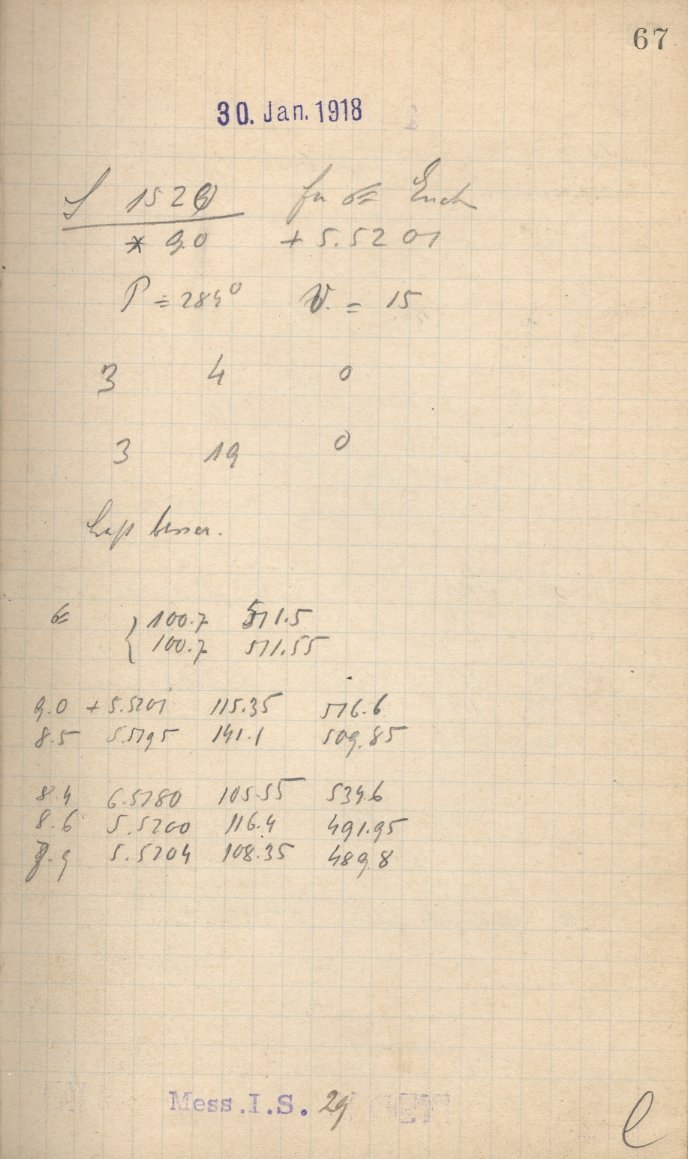 67
30. Jan. 1918
S 1520
* 9.0 + 5.5201
P = 284° V. = 15
3 4 0
3 19 0
Luft besser.
100.7 571.5
100.7 571.55
9.0 + 5.5201 115.35 576.6
8.5 5.5795 141.1 509.85
8.4 6.5780 105.55 534.6
8.6 5.5200 116.4 491.95
5.5204 108.35 489.8
Mess.I.S. 29